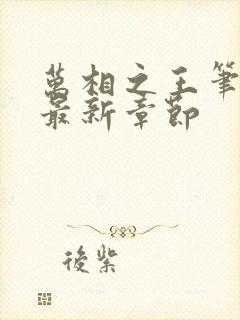 萬相之王筆
最新章節
後紫